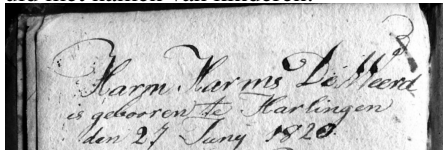 Harm Harms De Weerd
is geborren te Harlingen
den 27 Juny 1820.